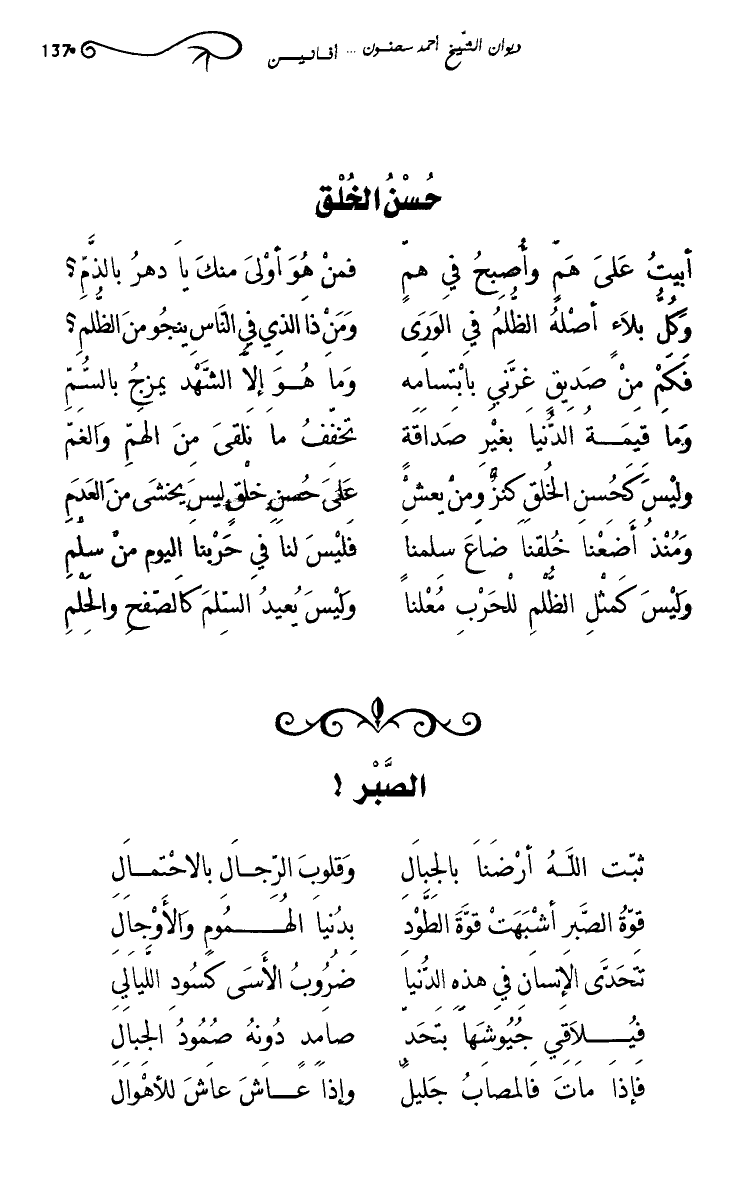 ديوان الشيخ أحمد سحنون ... أفانيـــن 137
حُسْنُ الخُلْق
أبيتُ عَلىَ هَمّ وأُصبِحُ في همّ فمنْ هُوَ أوْلىَ منكَ يا دهرُ بالذَّمِّ؟
وَكُلُّ بلاَء أصْلهُ الظُّلمُ في الوَرَى وَمَنْ ذا الذي في النّاسِ ينجُو منَ الظُّلمِ؟
فَكَمْ مِنْ صَديقٍ غرَّني بابْتسامِه وَما هُـــوَ إلاّ الشَّهْد يمزجُ بالسُّمِّ
وَما قيمَـــةُ الدُّنيا بغيْرِ صَداقة تخفّفُ ما نلقىَ مِنَ الهمِّ وَالغمِّ
وليْسَ كَحُسنِ الخُلقِ كنزٌ ومنْ يعشْ عَلىَ حُسنِ خلْقٍ ليسَ يخشَى منَ العَدَمِ
وَمُنْذُ أضَعْنا خُلقنا ضاعَ سلمنا فليْسَ لنا في حَرْبنا اليوم منْ سلْمِ
وَليْسَ كَمثْلِ الظُّلْمِ للْحَرْبِ مُعْلناً وَليْسَ يُعيدُ السّلمَ كالصّفحِ والحِلْمِ
الصَّبْر !
ثبّت اللَّـــهُ أرْضَنا بالجبالِ وَقلوبَ الرّجـــالِ بالاحْتمـــالِ
قوّةُ الصَّبرِ أشْبَهَتْ قوَّةَ الطَّوْدِ بدُنيا الهُـــــــمُومِ وَالأوْجالِ
تتَحَدَّى الإنسان في هذه الدُّنيا ضرُوبُ الأسَى كسُودِ اللّيالي
فيُـــــلاَقي جُيُوشَها بتحَدّ صامِدٍ دُونهُ صُمُودُ الجبالِ
فإذا ماتَ فالمصابُ جَليلٌ وإذا عـــاشَ عاشَ للأهْوالِ